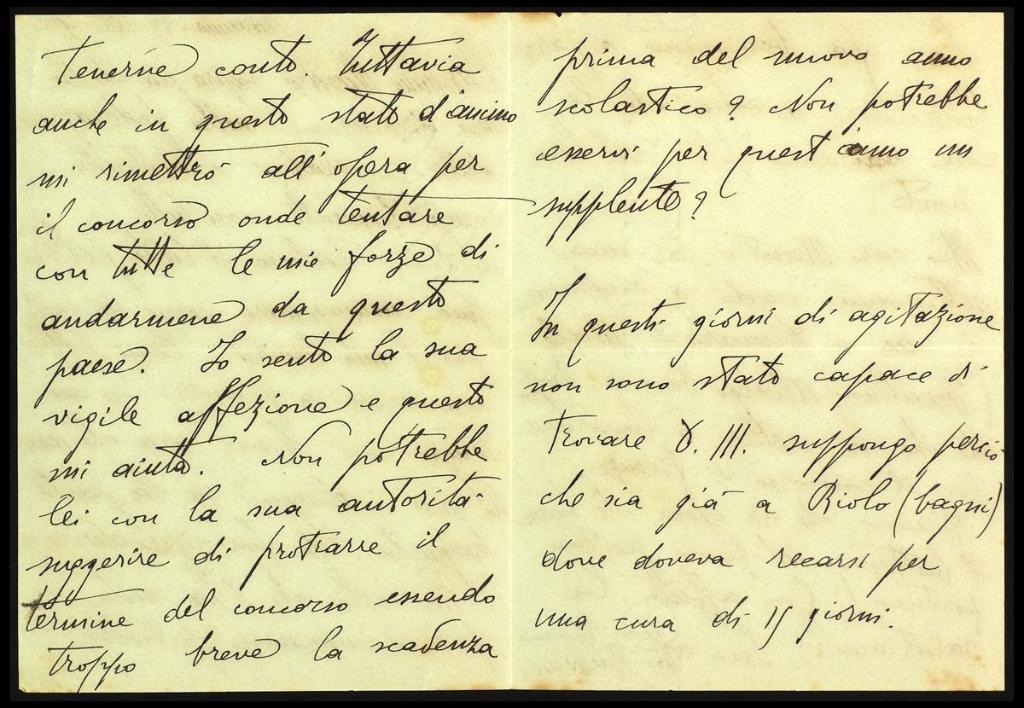 tenerne conto. Tuttavia
anche in questo stato d'animo
mi rimetterò all'opera per
il concorso onde tentare
con tutte le mie forze di
andarmene da questo
paese. Io sento la sua
vigile affezione e questo
mi aiuta. Non potrebbe
lei con la sua autorità
suggerire di protrarre il
termine del concorso essendo
troppo breve la scadenza
prima del nuovo anno
scolastico? Non potrebbe
esservi per quest'anno un
supplente?
In questi giorni di agitazione
non sono stato capace di
trovare III. suppongo perciò
che sia già a Riolo (bagni)
dove doveva recarsi per
una cura di 15 giorni.